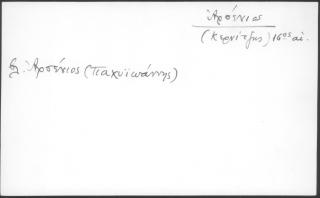 Ἀρσένιος
(Κερνίτζης) 16ος αἰ.
βλ. Ἀρσένιος (Παχυϊωάννης)